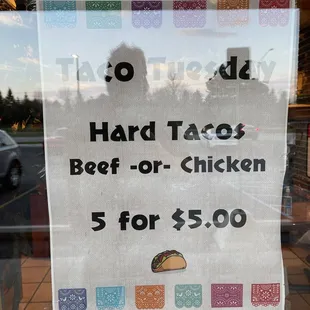 Taco Tuesday
Hard Tacos
Beef -or- Chicken
5 for $5.00